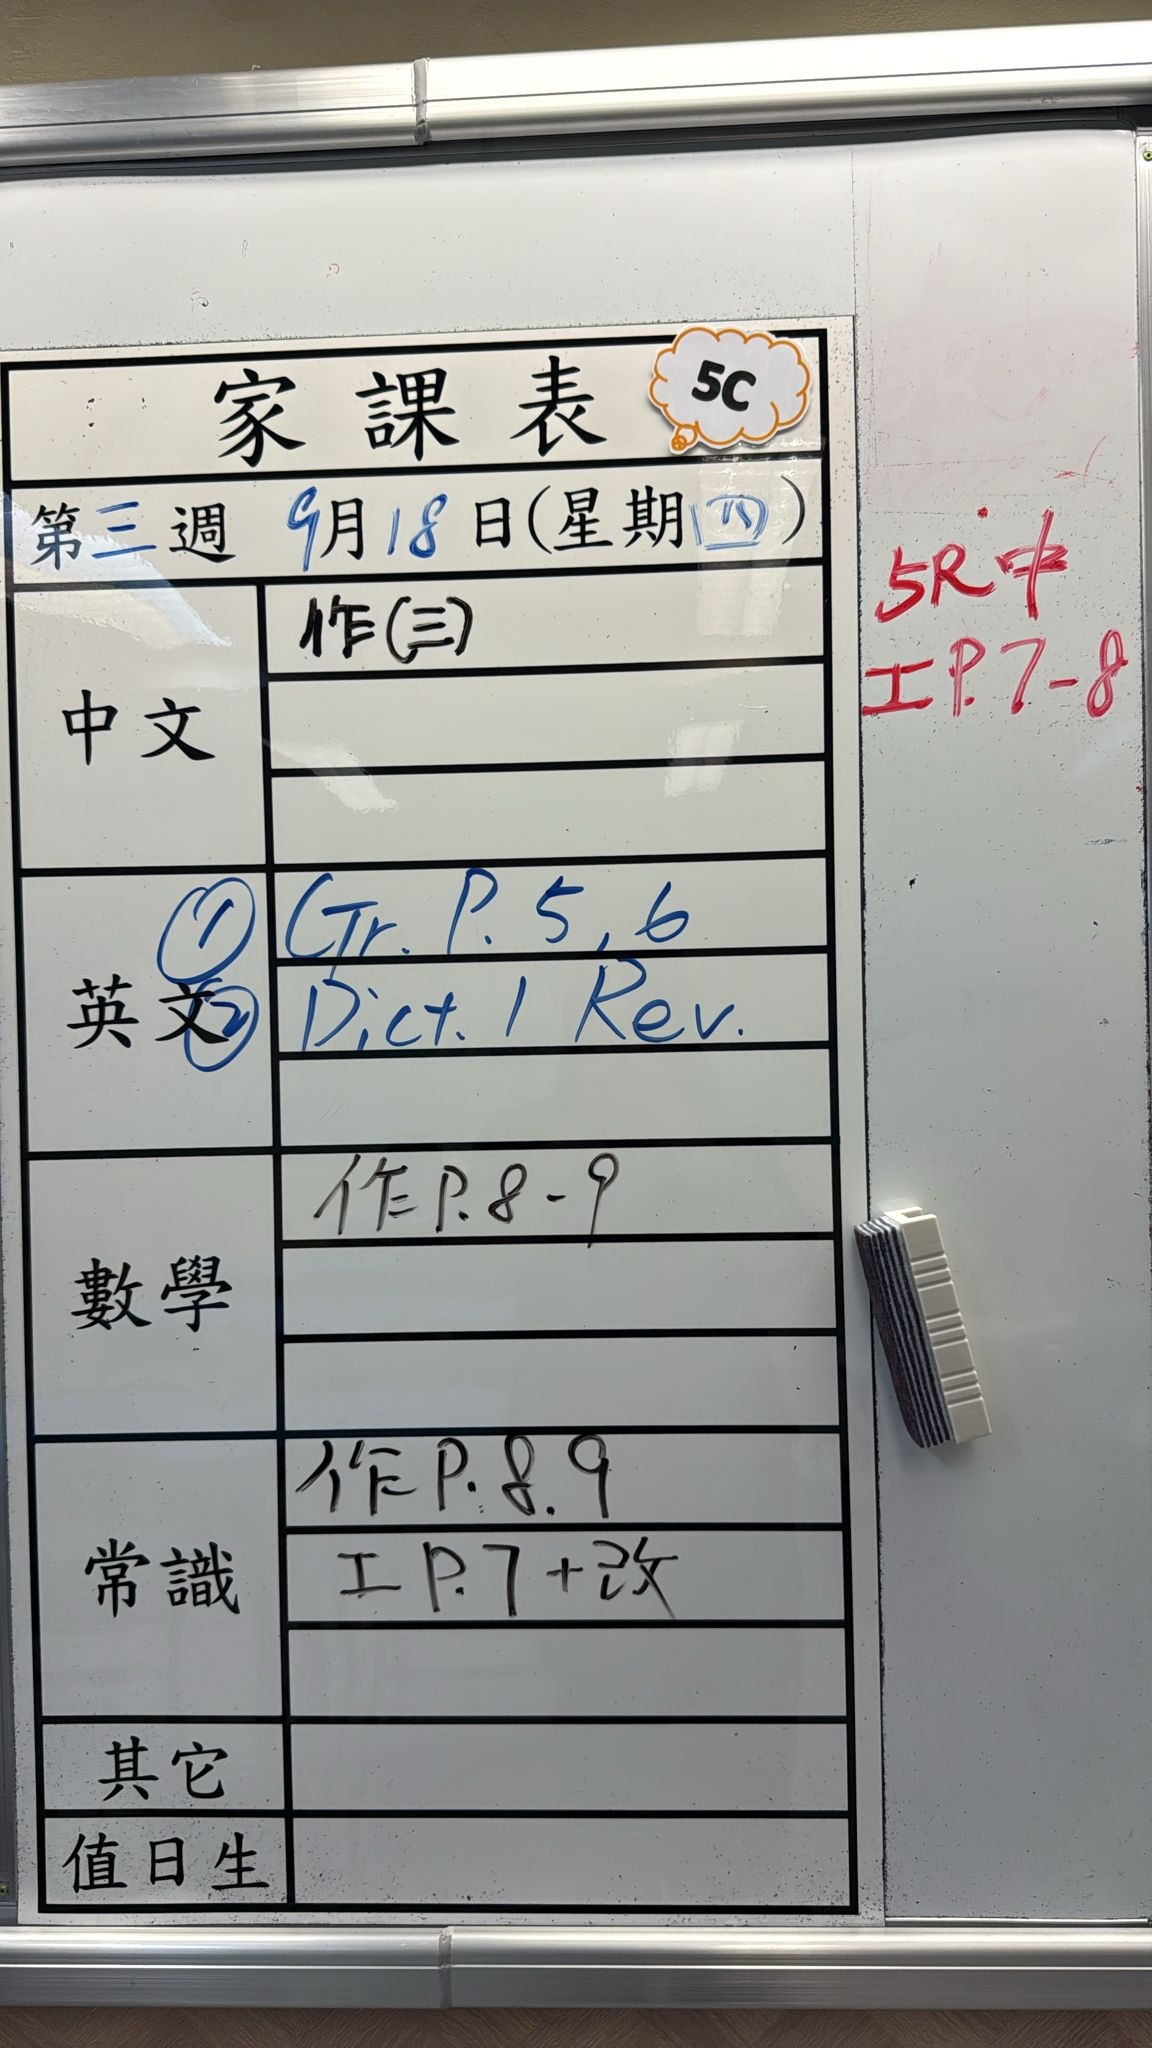 家課表 5C
第三週 9月18日(星期四)
中文
作(三)
英文
① Gr. P. 5, 6
② Dict. 1 Rev.
數學
作 P. 8-9
常識
作 P. 8. 9
工 P. 7 + 改
其它
值日生
5R中
工 P. 7-8